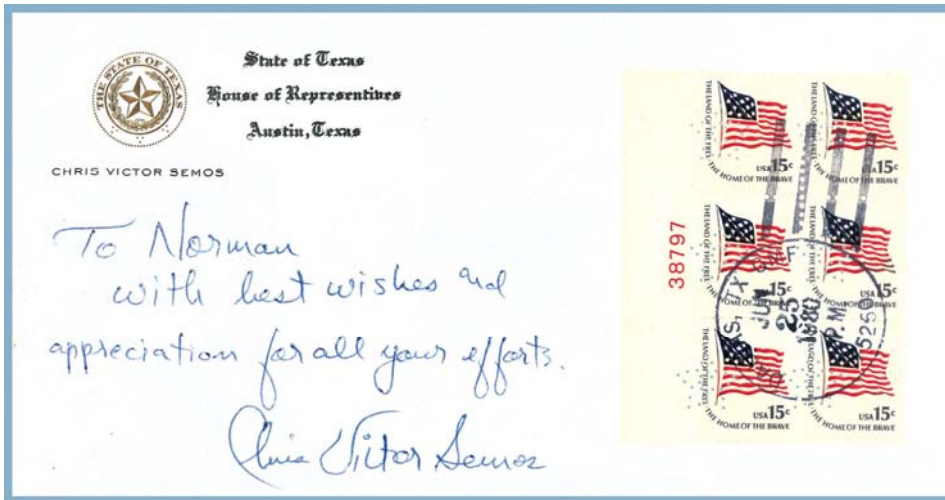 THE STATE OF TEXAS
State of Texas
House of Representatives
Austin, Texas
CHRIS VICTOR SEMOS
To Norman
with best wishes and
appreciation for all your efforts.
Chris Victor Semos
38797
THE LAND OF THE FREE
USA 15c
THE HOME OF THE BRAVE
THE LAND OF THE FREE
USA 15c
THE HOME OF THE BRAVE
THE LAND OF THE FREE
15c
THE HOME OF THE BRAVE
THE LAND OF THE FREE
USA 15c
THE HOME OF THE BRAVE
THE LAND OF THE FREE
USA 15c
THE HOME OF THE BRAVE
LAND OF THE FREE
USA 15c
THE HOME OF THE BRAVE
TX
25
1980
P.M.